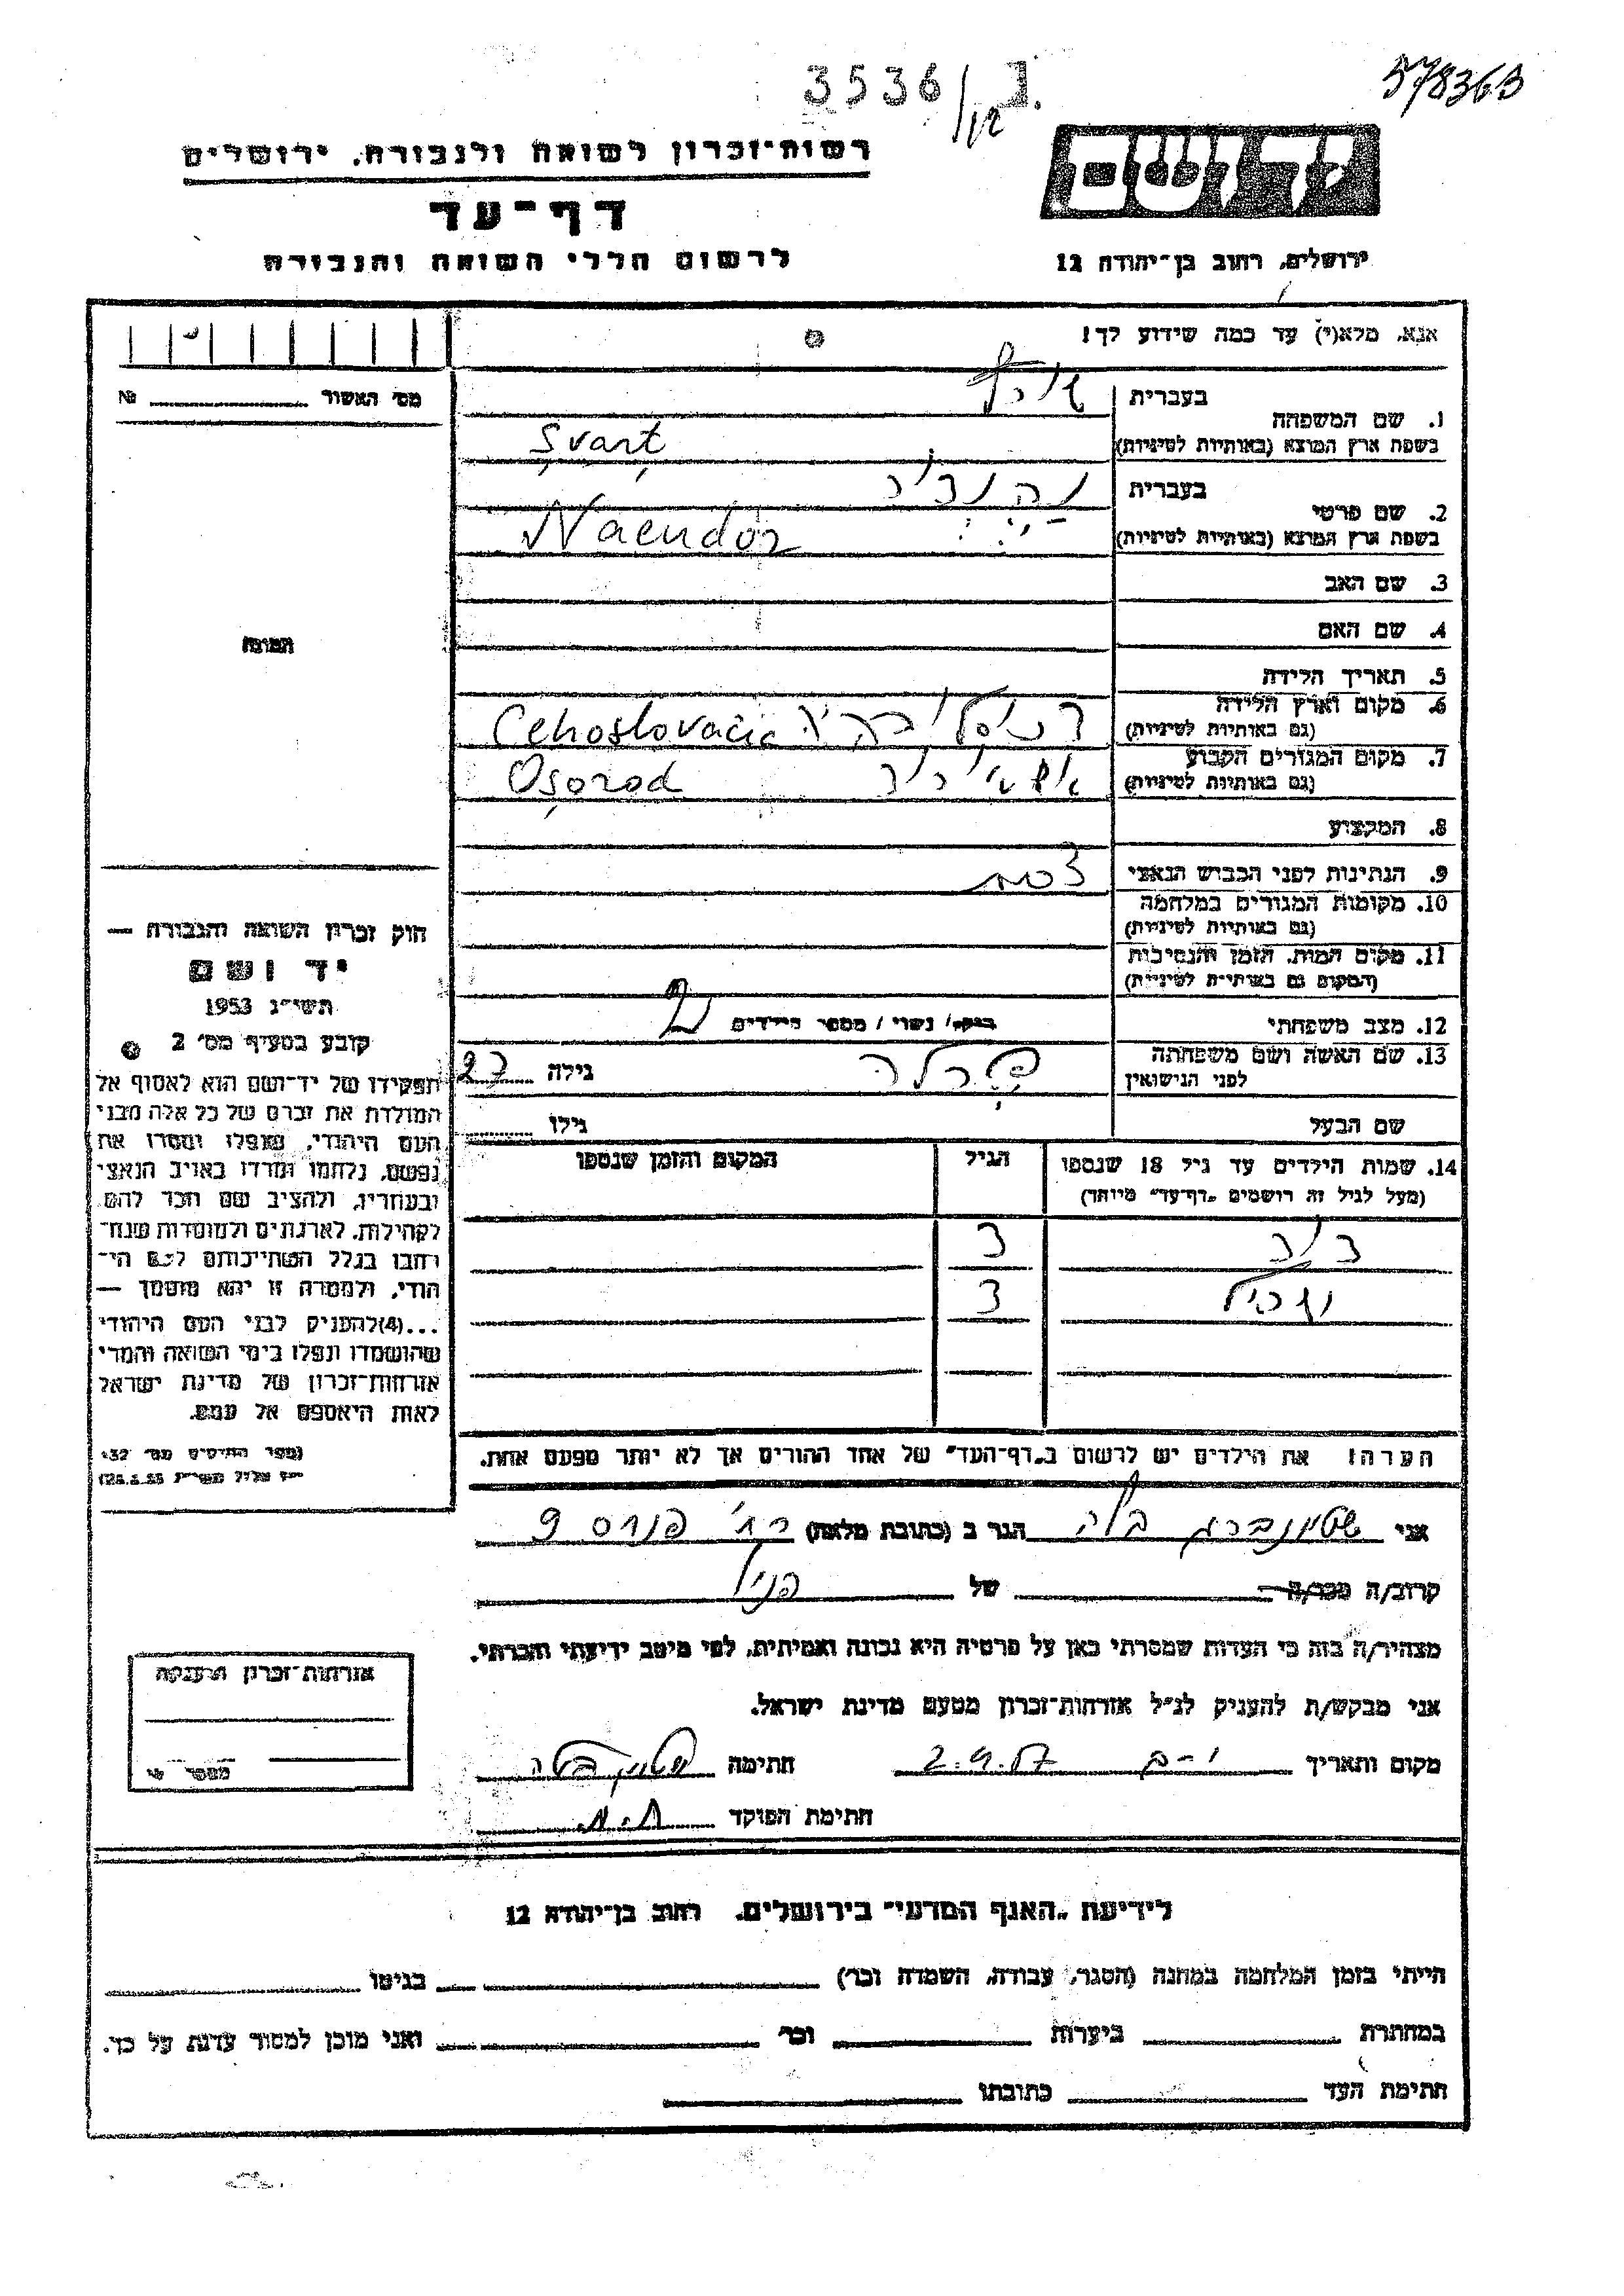 3536/1
578363
יד ושם
רשות-זכרון לשואה ולגבורה, ירושלים
דף-עד
לרשום חללי השואה והגבורה
ירושלים, רחוב בן-יהודה 12
אנא, מלא(י) עד כמה שידוע לך!
מס' האשור № 
בעברית
1. שם המשפחה
בשפת ארץ המוצא (באותיות לטיניות) Şvarţ
בעברית
2. שם פרטי
בשפת ארץ המוצא (באותיות לטיניות) Naendor
3. שם האב
4. שם האם
5. תאריך הלידה
6. מקום וארץ הלידה
(גם באותיות לטיניות) Cehoslovacia
7. מקום המגורים הקבוע
(גם באותיות לטיניות) Oşorod
8. המקצוע
9. הנתינות לפני הכבוש הנאצי
10. מקומות המגורים במלחמה
(גם באותיות לטיניות)
11. מקום המות, הזמן והנסיבות
(המקום גם באותיות לטיניות)
12. מצב משפחתי רווק/ נשוי / מספר הילדים 2
13. שם האשה ושם משפחתה
לפני הנישואין פרלה גילה 27
שם הבעל גילו
14. שמות הילדים עד גיל 18 שנספו הגיל המקום והזמן שנספו
(מעל לגיל זה רושמים "דף-עד" מיוחד)
3
3
הערה! את הילדים יש לרשום ב"דף-העד" של אחד ההורים אך לא יותר מפעם אחת.
התמונה
חוק זכרון השואה והגבורה —
יד ושם
תשי"ג 1953
קובע בסעיף מס' 2
תפקידו של יד-ושם הוא לאסוף אל
המולדת את זכרם של כל אלה מבני
העם היהודי, שנפלו ומסרו את
נפשם, נלחמו ומרדו באויב הנאצי
ובעוזריו, ולהציב שם וזכר להם,
לקהילות, לארגונים ולמוסדות שנח-
רבו בגלל השתייכותם לעם הי-
הודי, ולמטרה זו יהא מוסמך —
...(4) להעניק לבני העם היהודי
שהושמדו ונפלו בימי השואה והמרי
אזרחות-זכרון של מדינת ישראל
לאות היאספם אל עמם.
(ספר החוקים מס' 132
אני שטיינברג בלה הגר ב (כתובת מלאה) רח' פנרס 9
קרוב/ה מכר/ה של
מצהיר/ה בזה כי העדות שמסרתי כאן על פרטיה היא נכונה ואמיתית, לפי מיטב ידיעתי והכרתי.
אני מבקש/ת להעניק לנ"ל אזרחות-זכרון מטעם מדינת ישראל.
מקום ותאריך 2.9.57 חתימה
חתימת הפוקד
אזרחות-זכרון הוענקה
לידיעת "האגף המדעי" בירושלים, רחוב בן-יהודה 12
הייתי בזמן המלחמה במחנה (הסגר, עבודה, השמדה וכו') בגיטו
במחתרת ביערות וכו' ואני מוכן למסור עדות על כך.
חתימת העד כתובתו